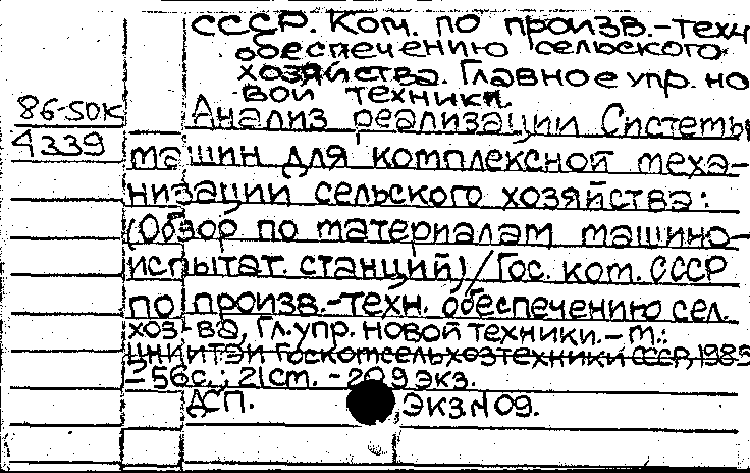 СССР. Ком. по произв.-техн
обеспечению сельского
хозяйства. Главное упр. но
вой техники.
86-50К Анализ реализации Системы
4339 машин для комплексной меха-
низации сельского хозяйства:
(Обзор по материалам машино-
испытат. станций)/Гос. ком. СССР
по произв.-техн. обеспечению сел.
хоз-ва, Гл. упр. новой техники.-М.:
ЦНИИТЭИ Госкомсельхозтехники СССР, 1985
-56с.; 21см. - 209 экз.
ДСП. ЭКЗ N 09.